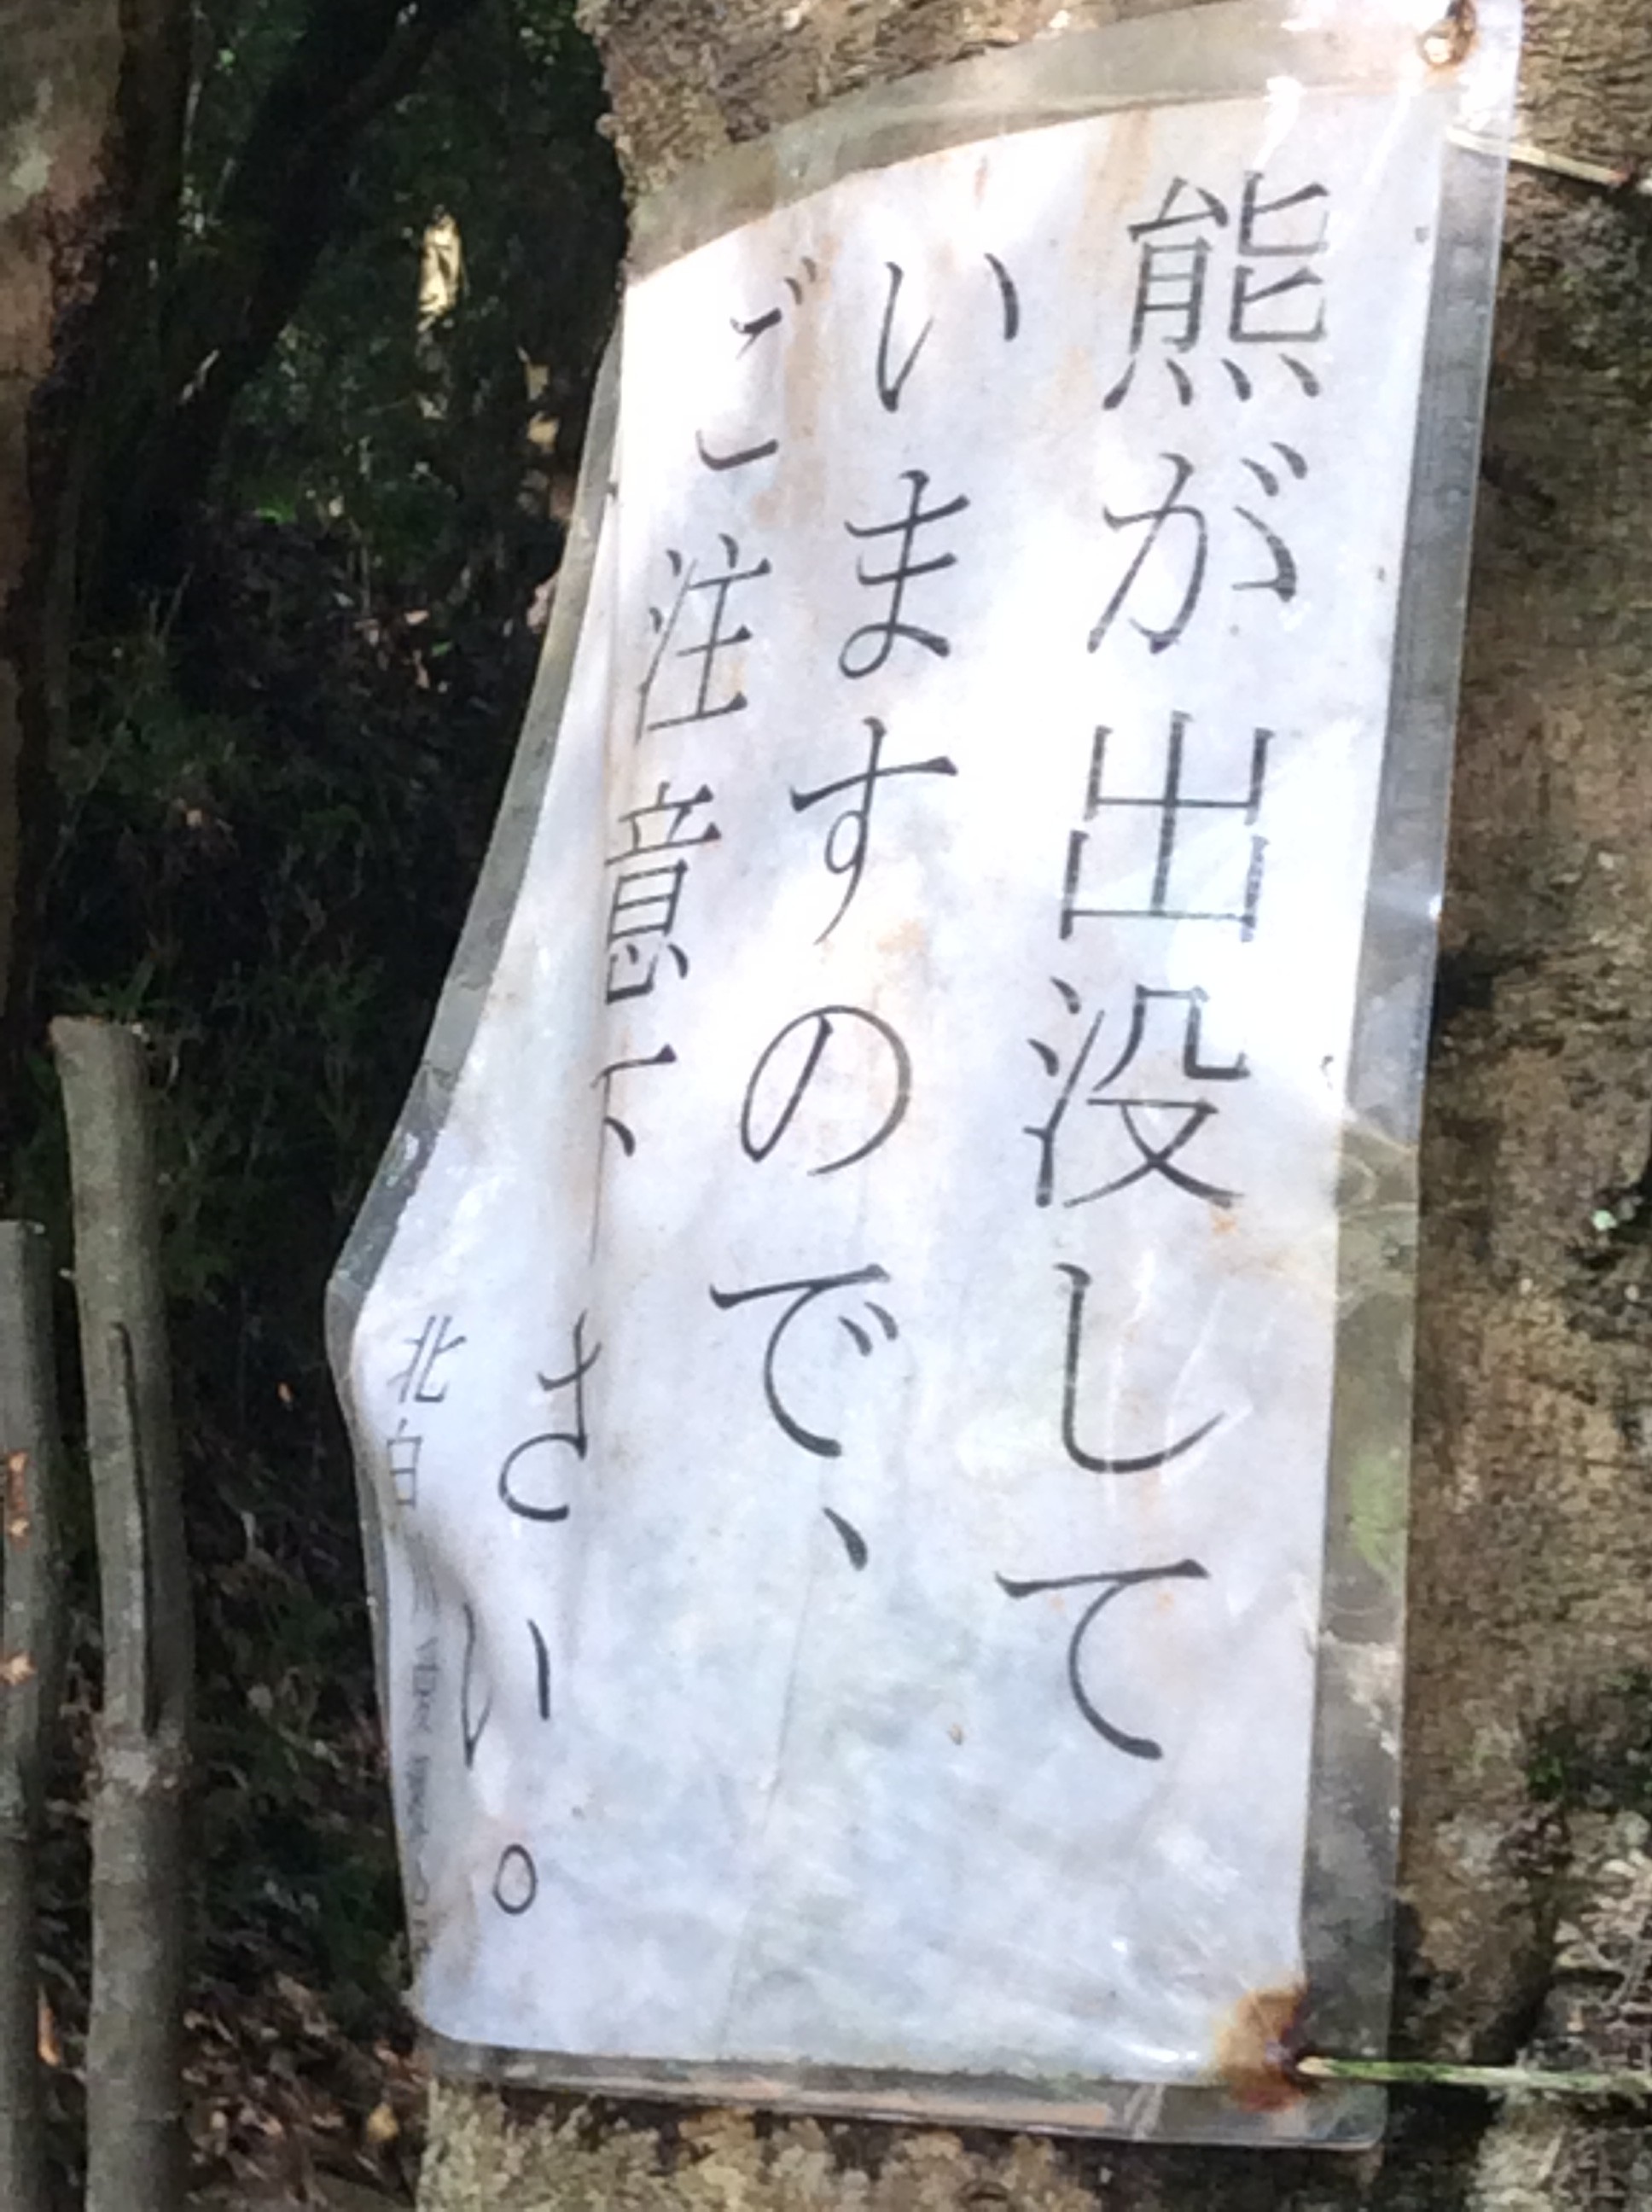 熊が出没して
いますので、
ご注意下さい。
北白